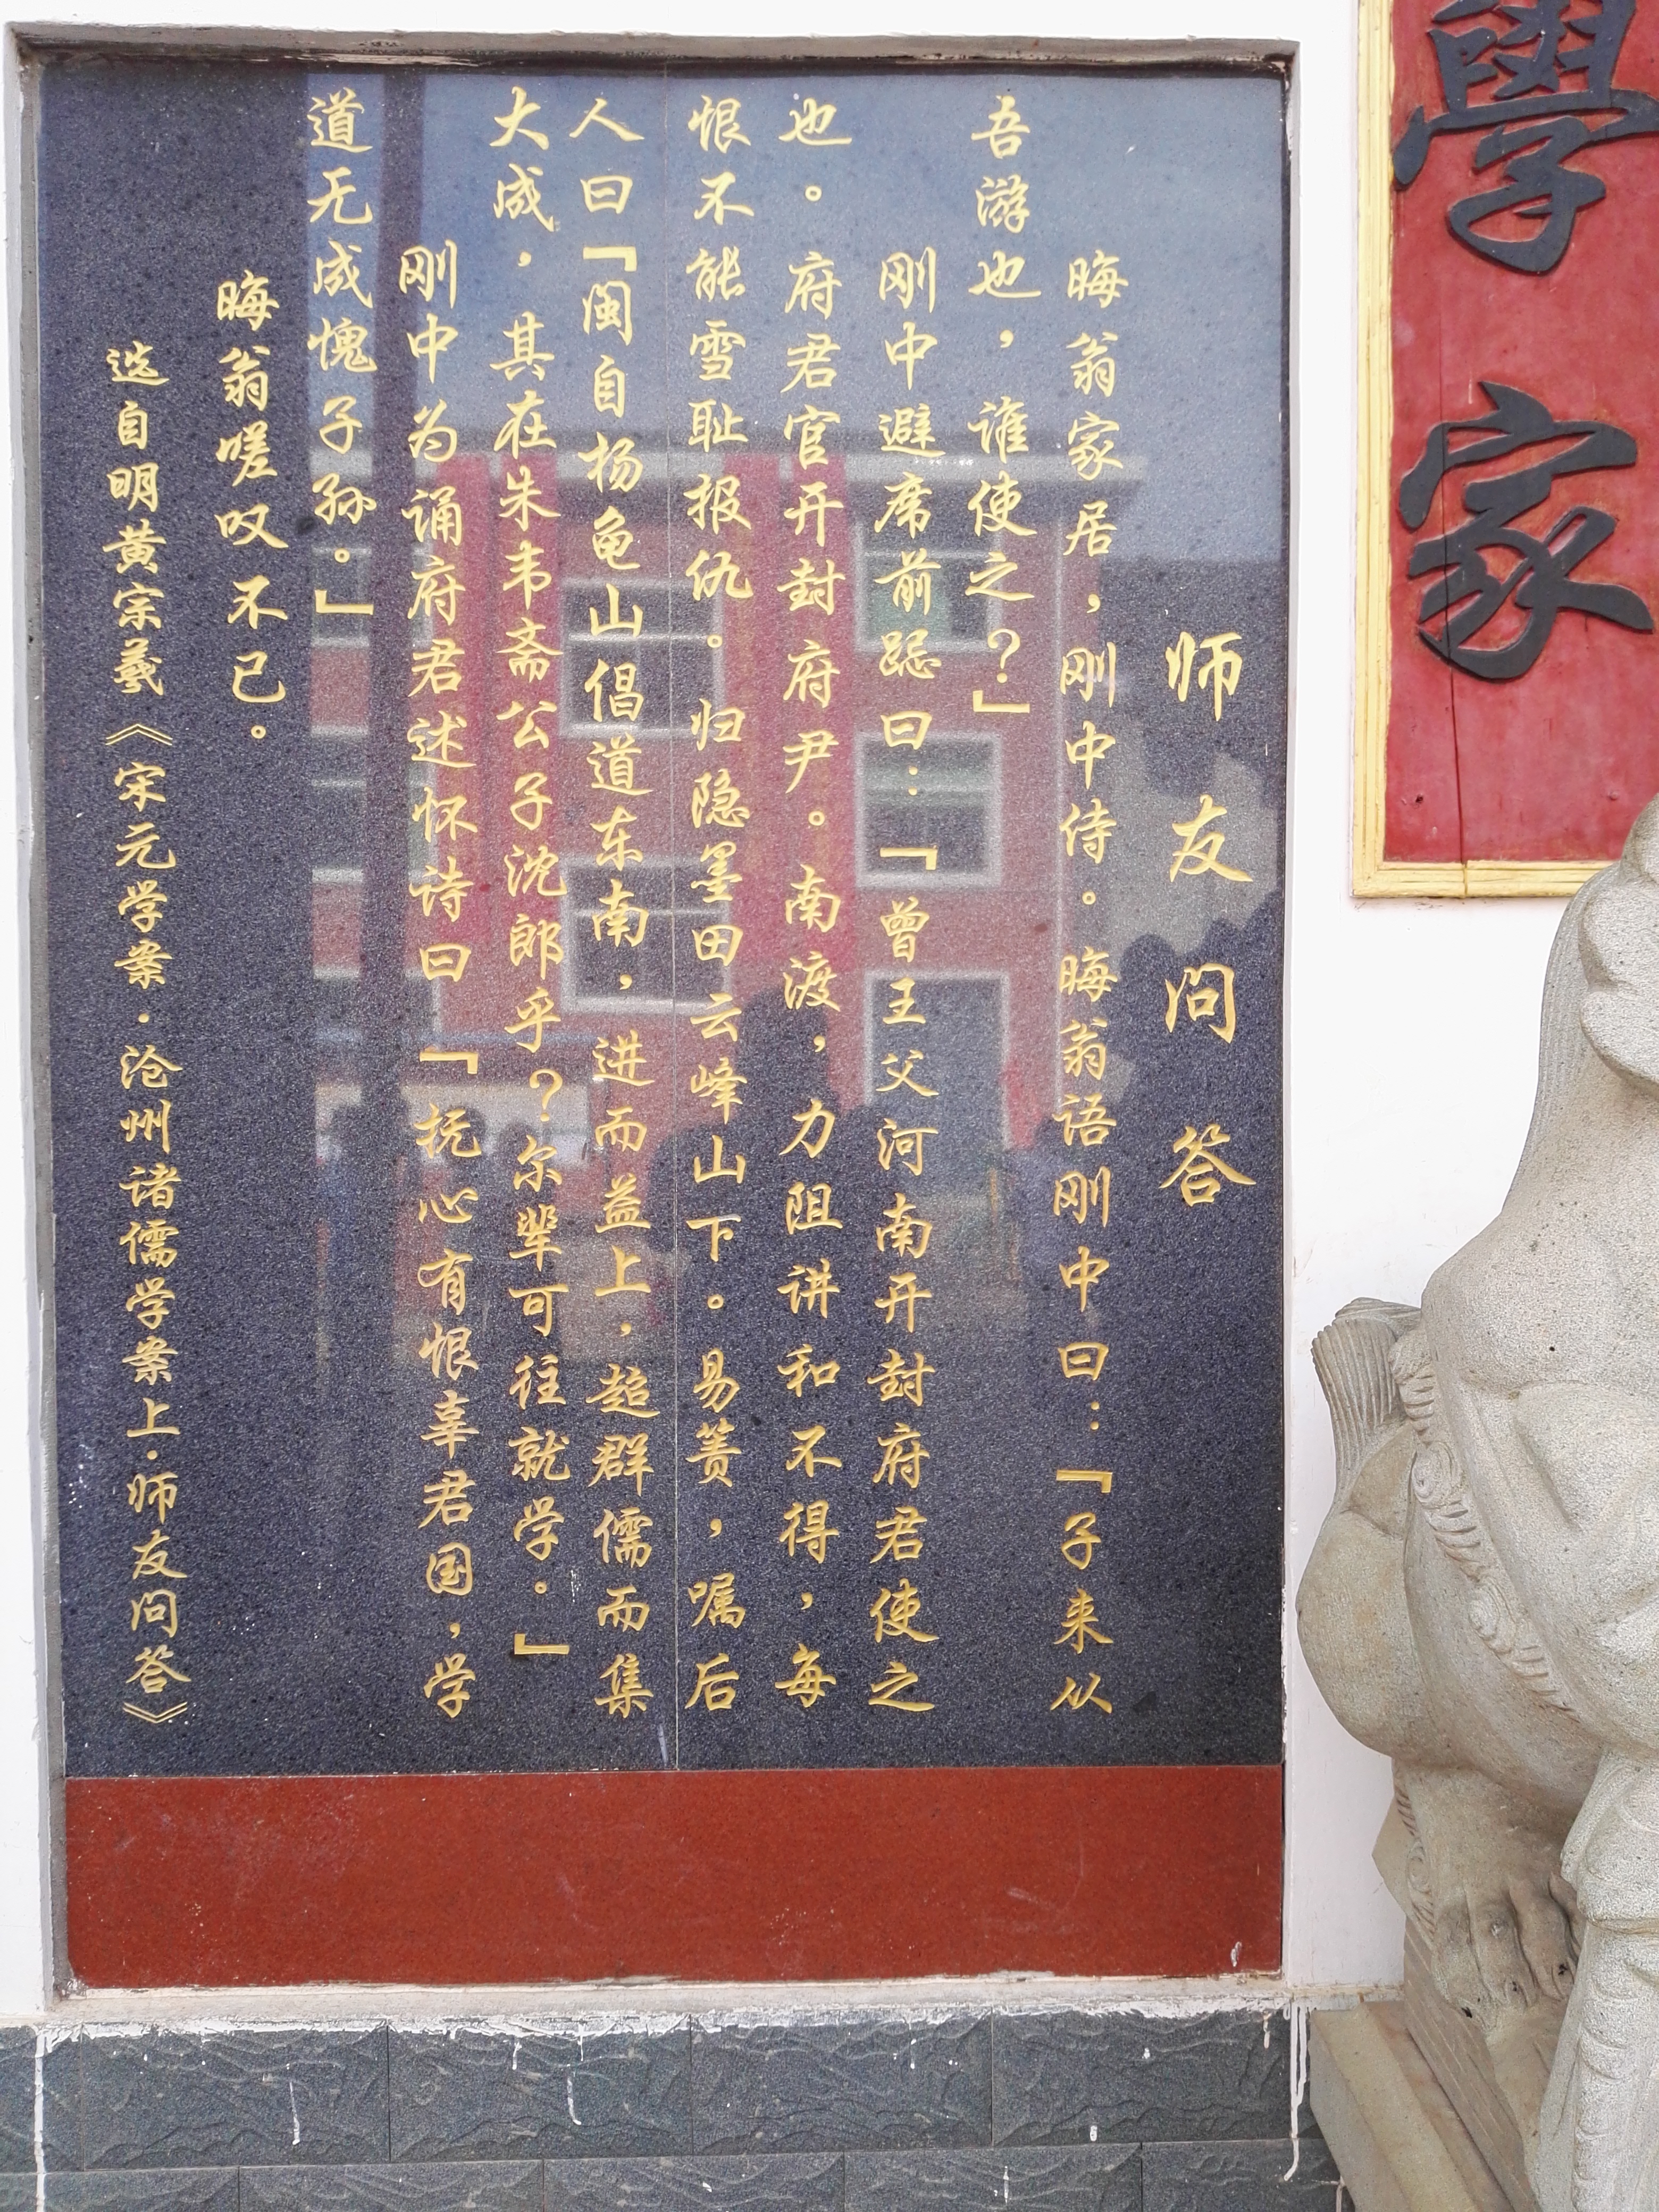 學家
师友问答
晦翁家居，刚中侍。晦翁语刚中曰：「子来从
吾游也，谁使之？」
刚中避席前跽曰：「曾王父河南开封府君使之
也。府君官开封府尹。南渡，力阻讲和不得，每
恨不能雪耻报仇。归隐墨田云峰山下。易箦，嘱后
人曰「闽自杨龟山倡道东南，进而益上，超群儒而集
大成，其在朱韦斋公子沈郎乎？尔辈可往就学。」
刚中为诵府君述怀诗曰「抚心有恨辜君国，学
道无成愧子孙。」
晦翁嗟叹不已。
选自明黄宗羲《宋元学案·沧州诸儒学案上·师友问答》